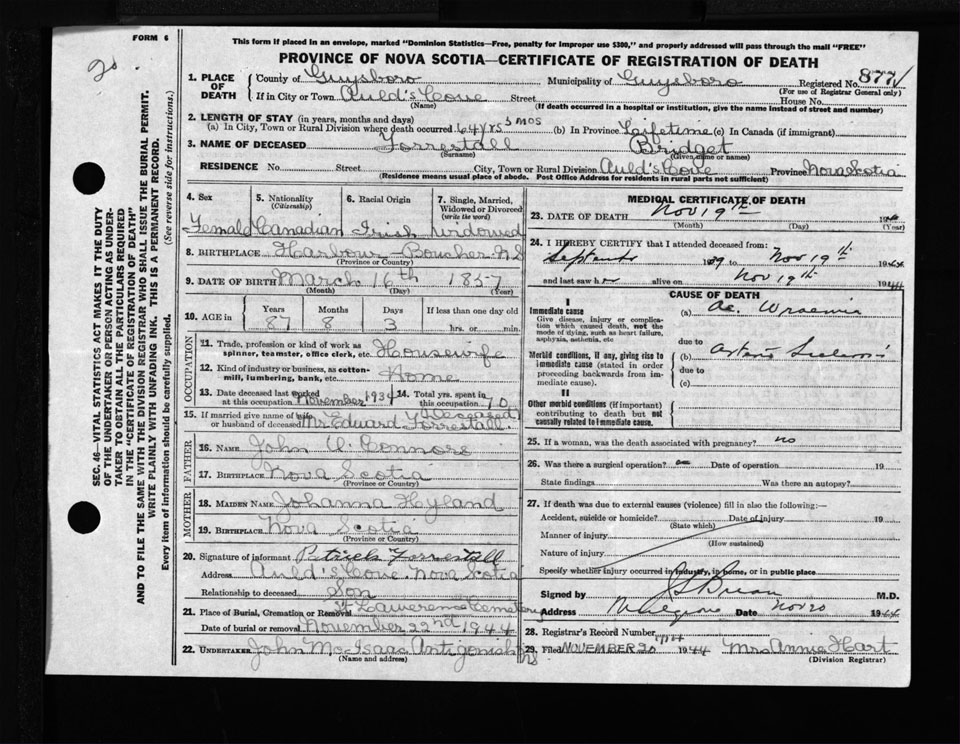 FORM 6
20
This form if placed in an envelope, marked "Dominion Statistics—Free, penalty for improper use $300," and properly addressed will pass through the mail "FREE"
PROVINCE OF NOVA SCOTIA—CERTIFICATE OF REGISTRATION OF DEATH
SEC. 46—VITAL STATISTICS ACT MAKES IT THE DUTY
OF THE UNDERTAKER OR PERSON ACTING AS UNDER-
TAKER TO OBTAIN ALL THE PARTICULARS REQUIRED
IN THE "CERTIFICATE OF REGISTRATION OF DEATH"
AND TO FILE THE SAME WITH THE DIVISION REGISTRAR WHO SHALL ISSUE THE BURIAL PERMIT.
WRITE PLAINLY WITH UNFADING INK. THIS IS A PERMANENT RECORD.
Every item of information should be carefully supplied. (See reverse side for instructions.)
1. PLACE OF DEATH
County of Guysboro Municipality of Guysboro Registered No. 8771
(For use of Registrar General only)
If in City or Town Auld's Cove Street House No.
(Name) (If death occurred in a hospital or institution, give the name instead of street and number)
2. LENGTH OF STAY (in years, months and days)
(a) In City, Town or Rural Division where death occurred 64 yrs 3 mos (b) In Province Lifetime (c) In Canada (if immigrant)
3. NAME OF DECEASED Forrestall Bridget
(Surname) (Given name or names)
RESIDENCE No. Street City, Town or Rural Division Auld's Cove Province Nova Scotia
(Residence means usual place of abode. Post Office Address for residents in rural parts not sufficient)
4. Sex Female
5. Nationality (Citizenship) Canadian
6. Racial Origin Irish
7. Single, Married, Widowed or Divorced (write the word) Widowed
8. BIRTHPLACE Harbour Boucher N.S
(Province or Country)
9. DATE OF BIRTH March 16th 1857
(Month) (Day) (Year)
10. AGE in Years 87 Months 8 Days 3 If less than one day old
hrs. or min.
OCCUPATION
11. Trade, profession or kind of work as spinner, teamster, office clerk, etc. Housewife
12. Kind of industry or business, as cotton-mill, lumbering, bank, etc. Home
13. Date deceased last worked at this occupation November 1934 14. Total yrs. spent in this occupation 70
15. If married give name of wife or husband of deceased Mr Edward Forrestall Deceased
FATHER
16. NAME John Connors
17. BIRTHPLACE Nova Scotia
(Province or Country)
MOTHER
18. MAIDEN NAME Johanna Hyland
19. BIRTHPLACE Nova Scotia
(Province or Country)
20. Signature of informant Patrick Forrestall
Address Auld's Cove. Nova Scotia
Relationship to deceased Son
21. Place of Burial, Cremation or Removal Cemetery
Date of burial or removal November 22nd 1944
22. UNDERTAKER John McIsaac Antigonish NS
(Name and address)
MEDICAL CERTIFICATE OF DEATH
23. DATE OF DEATH Nov 19th 19
(Month) (Day) (Year)
24. I HEREBY CERTIFY that I attended deceased from:
September 19 to Nov 19th 1944
and last saw h alive on Nov 19th 1944
CAUSE OF DEATH
I
Immediate cause
Give disease, injury or complica-
tion which caused death, not the
mode of dying, such as heart failure,
asphyxia, asthenia, etc
(a) Ac. Uraemia
due to
Morbid conditions, if any, giving rise to
immediate cause (stated in order
proceeding backwards from im-
mediate cause).
(b)
due to
(c)
II
Other morbid conditions (if important)
contributing to death but not
causally related to immediate cause.
25. If a woman, was the death associated with pregnancy? no
26. Was there a surgical operation? Date of operation 19
State findings Was there an autopsy?
27. If death was due to external causes (violence) fill in also the following:—
Accident, suicide or homicide? Date of injury 19
(State which)
Manner of injury
(How sustained)
Nature of injury
Specify whether injury occurred in industry, in home, or in public place
Signed by M.D.
Address Mulgrave Date Nov 20 1944
28. Registrar's Record Number
29. Filed NOVEMBER 20 1944 Mrs Annie Hart
(Division Registrar)